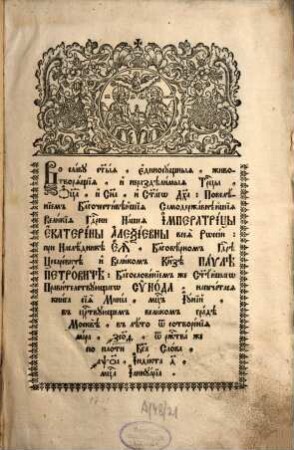 Во славу ст҃ыѧ, единосущныѧ, живо-
творѧщїѧ, и нераздѣлимыѧ Трⷪ҇цы,
Ѻц҃а, и Сн҃а, и Ст҃агѡ Дх҃а: Повелѣ-
нїемъ Благочестивѣйшїѧ Самодержавнѣйшїѧ
Великїѧ Гдⷭ҇рни Нашеѧ ІМПЕРАТРИЦЫ
ЕКАТЕРИНЫ АЛЕѮІЕВНЫ всеѧ Рѡссїи:
при Наслѣдникѣ ЕѦ, Благовѣрномъ Гдⷭ҇рѣ
Цесаревичѣ и Великомъ Кнѧзѣ ПАУЛѢ
ПЕТРОВИЧѢ: Благословенїемъ же Ст҃ѣйшагѡ
Правителствующагѡ СѴНОДА, напечатасѧ
книга сїѧ Минеа, мцⷭ҇ъ Іунїй,
въ црⷭ҇твующемъ великомъ градѣ
Москвѣ, въ лѣто ѿ сотворенїѧ
мїра
ѿ ржⷭ҇тва же
по плоти Бг҃а Слова
Індїкта
мцⷭ҇а Іаннуарїа
A/48/21